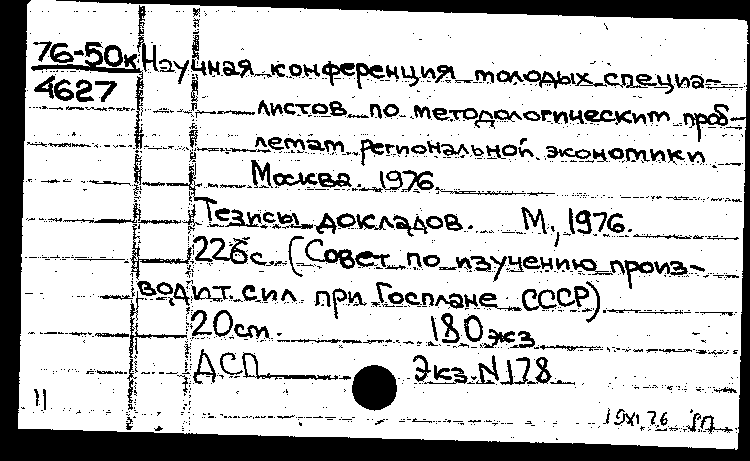 76-50к Научная конференция молодых специа-
4627
листов по методологическим проб-
лемам региональной экономики
Москва. 1976.
Тезисы докладов. М., 1976.
226с (Совет по изучению произ-
водит. сил при Госплане СССР)
20см. 180 экз
ДСП Экз. N 178.
11
19XI 76